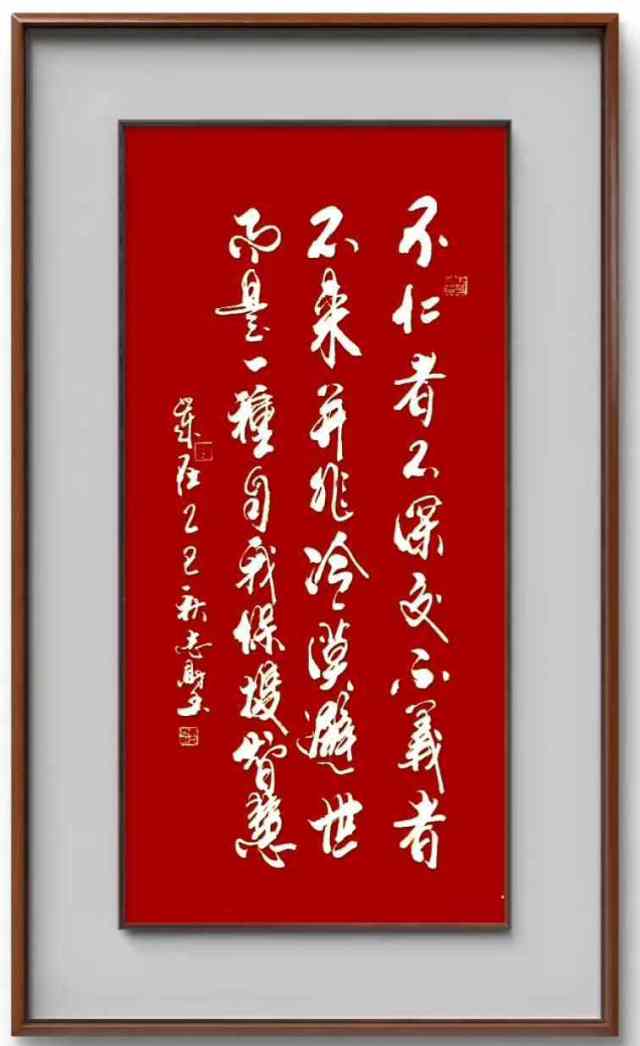 不仁者不深交不義者
不来并非冷漠避世
而是一種自我保護智慧
歲在乙巳秋志財书